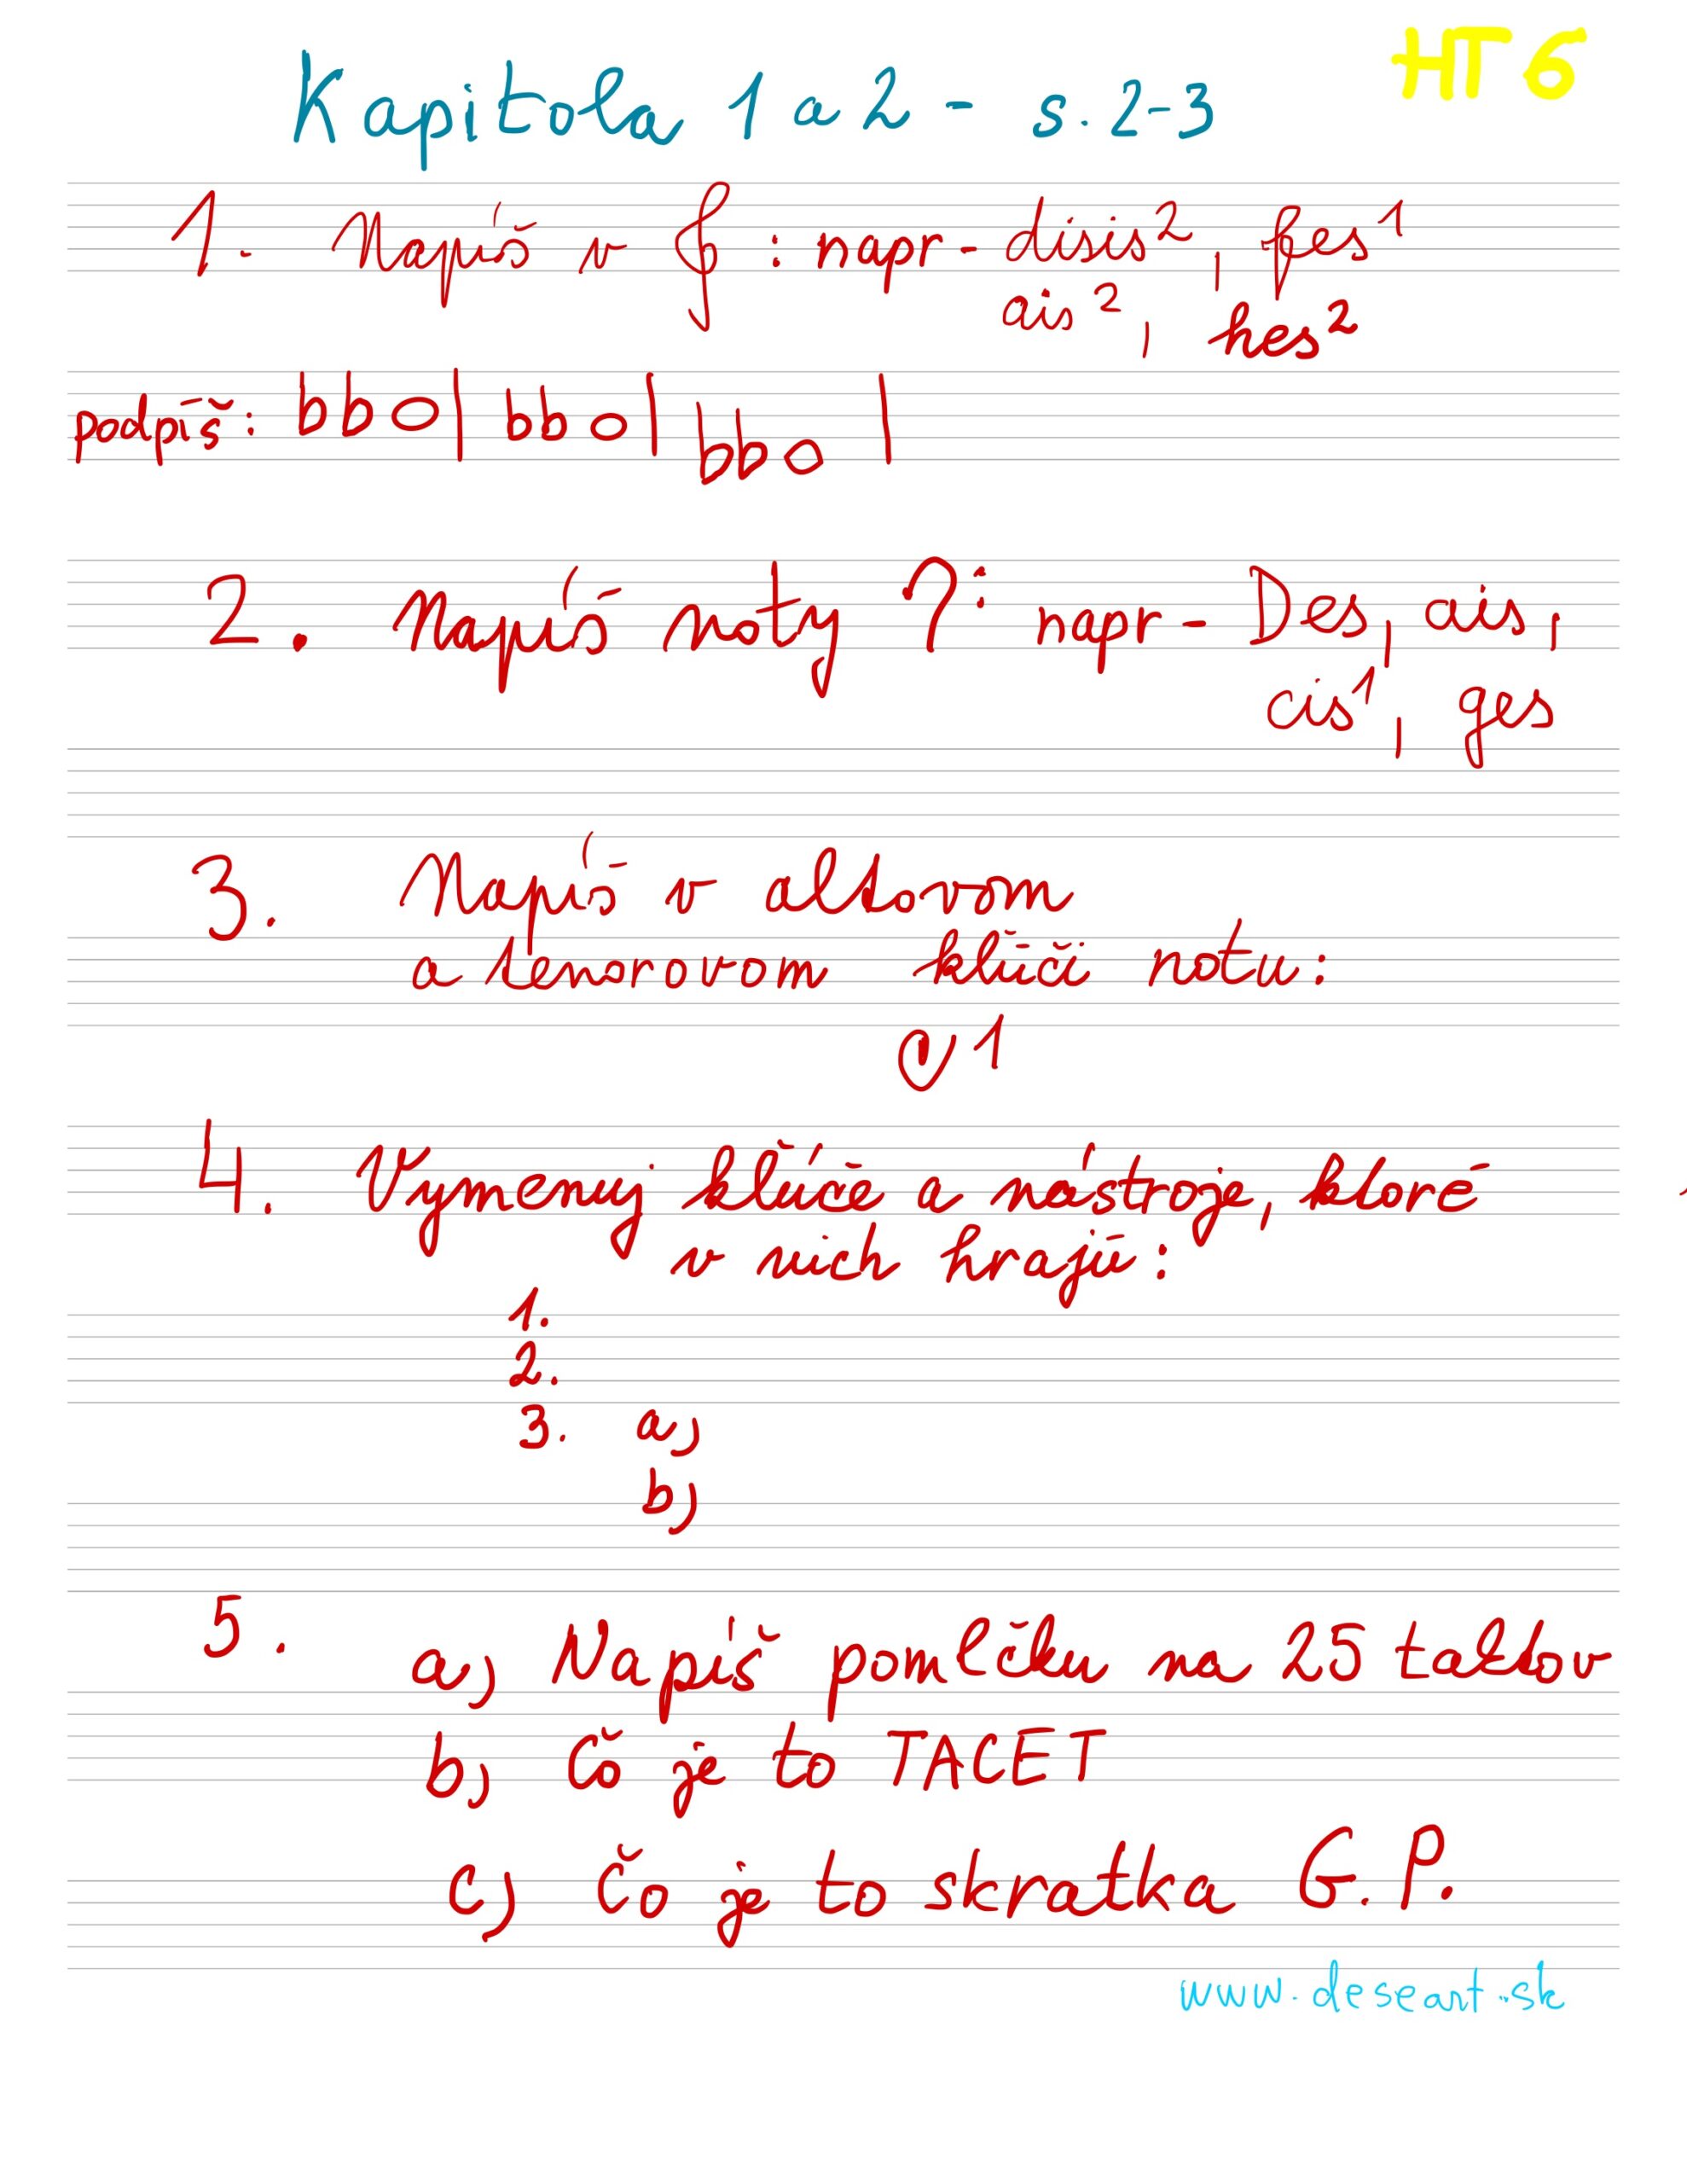 HT 6
Kapitola 1 a 2 - s. 2-3
1. Napíš v 𝄞 : napr - disis², fes¹
ais², hes²
podpíš: bb o | bb o | bb o |
2. Napíš noty 𝄢 : napr - Des, ais,
cis¹, ges
3. Napíš v altovom
a tenorovom kľúči notu:
c1
4. Vymenuj kľúče a nástroje, ktoré
v nich hrajú:
1.
2.
3. a)
b)
5. a) Napíš pomlčku na 25 taktov
b) Čo je to TACET
c) Čo je to skratka G.P.
www.deseart.sk